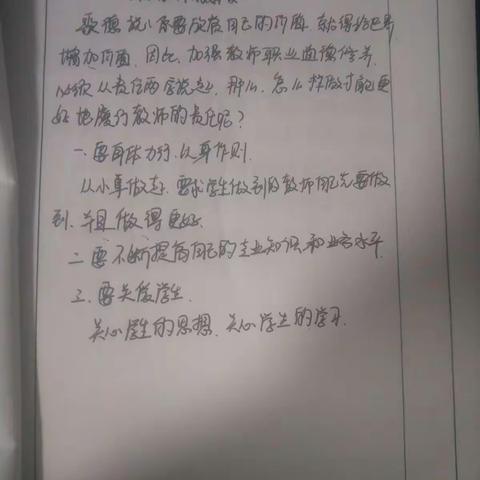 歌德说：你要欣赏自己的价值，就得给世界
增加价值。因此，加强教师职业道德修养，
必须从责任两字说起，那么，怎么样做才能更
好地履行教师的责任呢？
一、要身体力行、以身作则。
从小事做起，要求学生做到的教师自己先要做
到，并且做得更好。
二、要不断提高自己的专业知识和业务水平。
三、要关爱学生。
关心学生的思想、关心学生的学习。